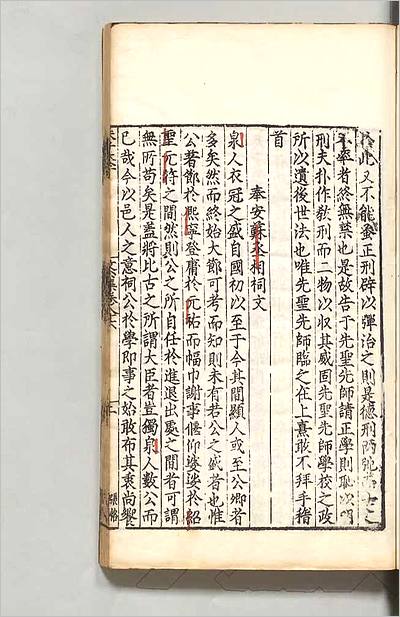 此又不能發正刑辟以彈治之則是德刑兩
不率者終無禁也是故告于先聖先師請正學則恥以明
刑夫扑作敎刑而二物以収其威固先聖先師學校之政
所以遺後世法也唯先聖先師臨之在上熹敢不拜手稽
首
奉安蘇丞相祠文
泉人衣冠之盛自國初以至于今其間顯人或至公卿者
多矣然而終始大節可考而知則未有若公之盛者也惟
公著節於熈寧登庸於元祐而幅巾謝事偃仰婆娑於紹
聖元符之間然則公之所自任於進退出處之間者可謂
無所苟矣是蓋將比古之所謂大臣者豈獨泉人數公而
已哉今以邑人之意祠公於學即事之始敢布其衷尚饗